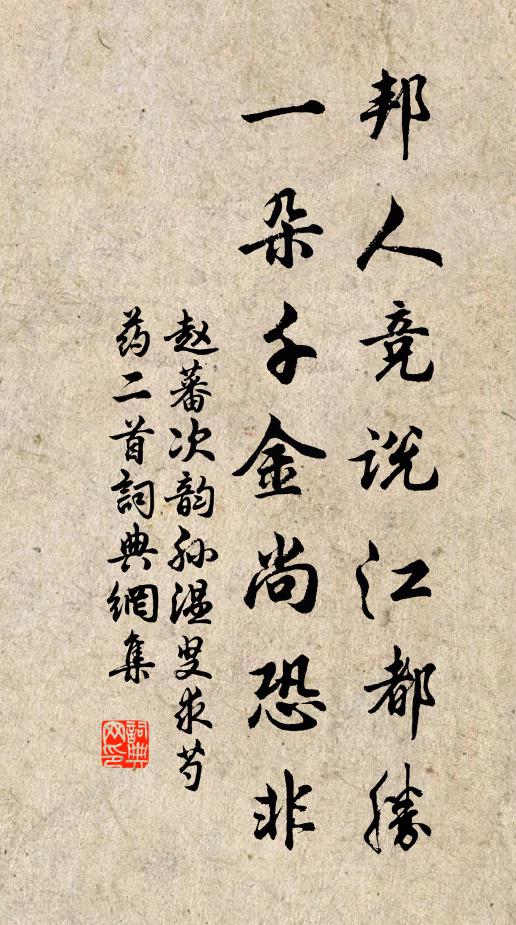 邦人竞说江都勝
一朵千金尚恐非
赵蕃次韵孙温叟求芍
药二首詞典網集
詞典
网印